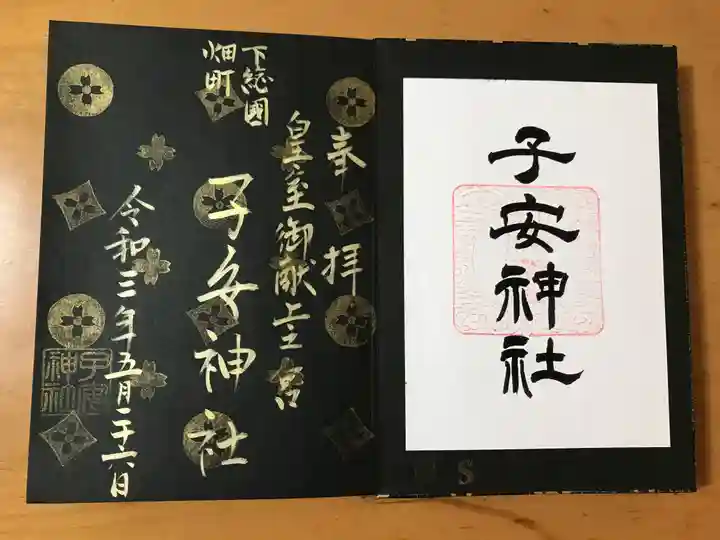 奉拝
皇室御献上之宮
下総國
畑町
子安神社
令和三年五月二十六日
子安
神社
子安神社
S